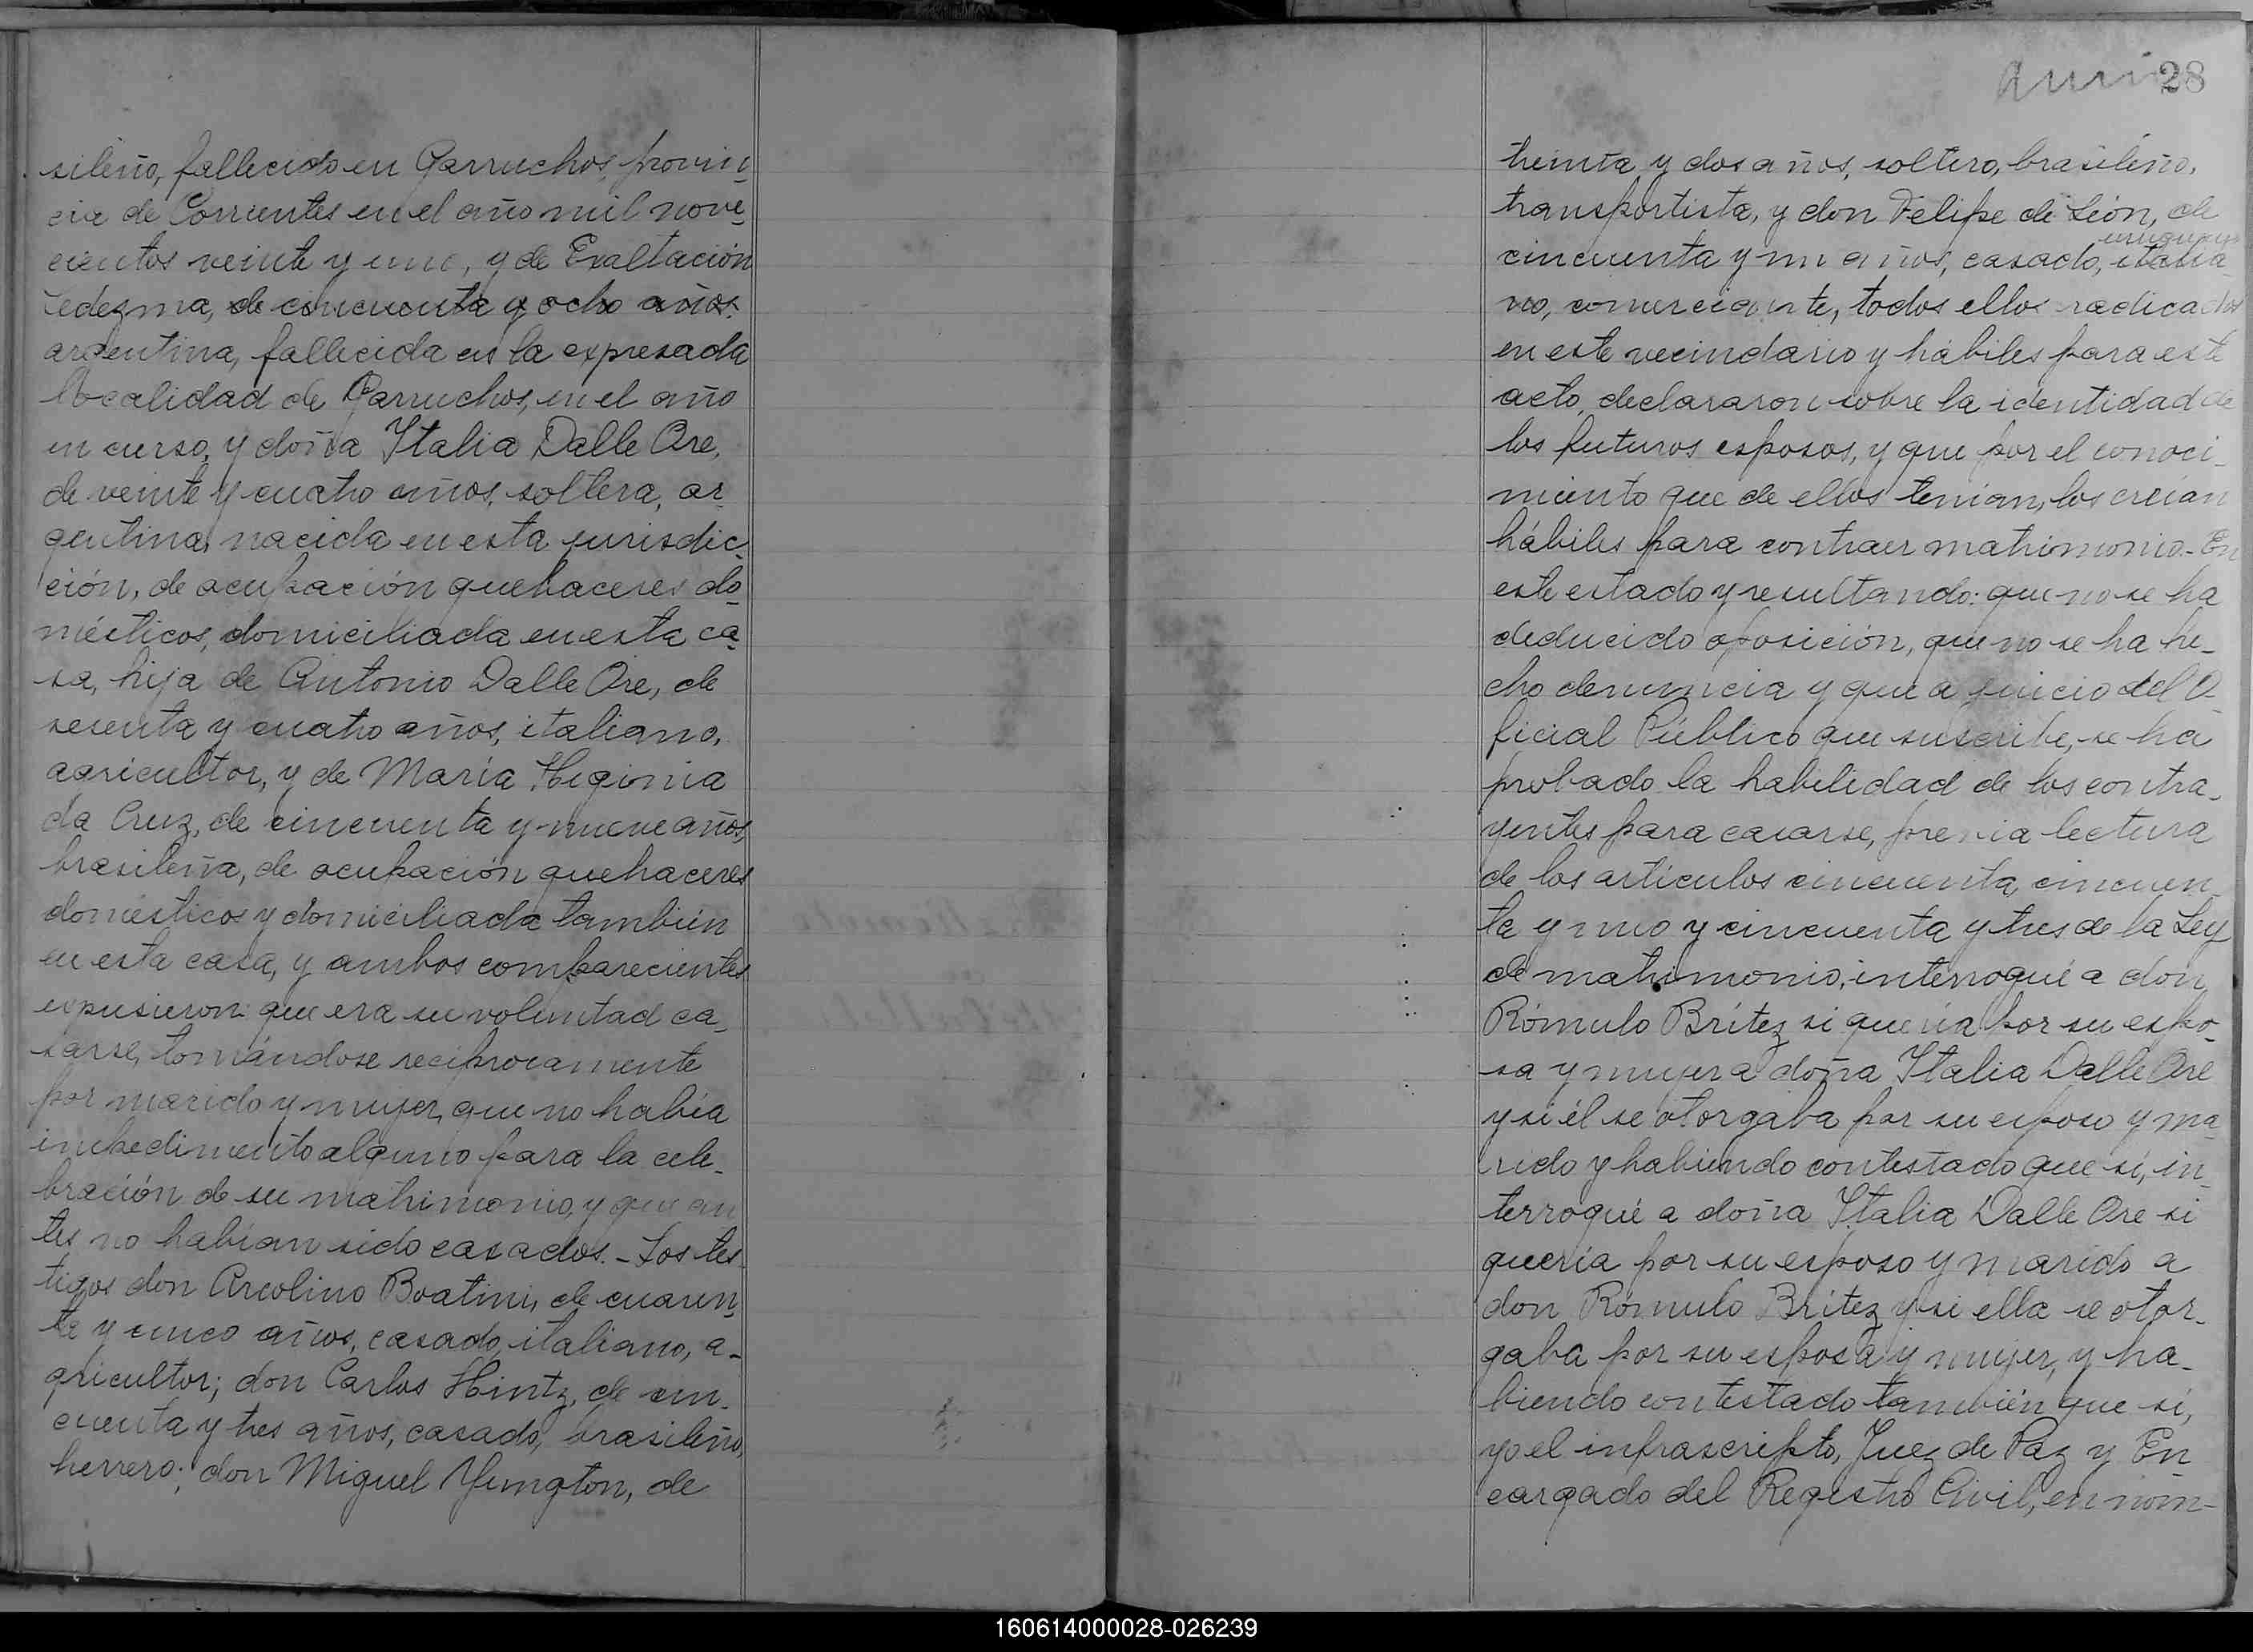 sileño, fallecido en Garruchos, provin-
cia de Corrientes en el año mil nove-
cientos veinte y uno, y de Exaltación
Ledezma, de cincuenta y ocho años.
argentina, fallecida en la expresada
localidad de Garruchos, en el año
en curso, y doña Italia Dalle Ore,
de veinte y cuatro años, soltera, ar-
gentina, nacida en esta jurisdic-
ción, de ocupación quehaceres do-
mésticos, domiciliada en esta ca-
sa, hija de Antonio Dalle Ore, de
sesenta y cuatro años, italiano,
agricultor, y de María Higinia
da Cruz, de cincuenta y nueve años,
brasileña, de ocupación quehaceres
domésticos y domiciliada también
en esta casa, y ambos comparecientes
expusieron: que era su voluntad ca-
sarse, tomándose recíprocamente
por marido y mujer, que no había
impedimento alguno para la cele-
bración de su matrimonio, y que an
tes no habían sido casados. - Los tes-
tigos don Arcolino Boatini, de cuaren-
ta y cinco años, casado, italiano, a-
gricultor; don Carlos Hintz, de cin-
cuenta y tres años, casado, brasileño,
herrero; don Miguel Yungton, de
28
treinta y dos años, soltero, brasileño,
transportista, y don Felipe de León, de
uruguayo
cincuenta y un años, casado, italia-
no, comerciante, todos ellos radicados
en este vecindario y hábiles para este
acto, declararon sobre la identidad de
los futuros esposos, y que por el conoci-
miento que de ellos tenían, los creían
hábiles para contraer matrimonio.- En
este estado y resultando: que no se ha
deducido oposición, que no se ha he-
cho denuncia y que a juicio del O-
ficial Público que suscribe, se ha
probado la habilidad de los contra-
yentes para casarse, previa lectura
de los artículos cincuenta, cincuen-
ta y uno y cincuenta y tres de la Ley
de matrimonio, interrogué a don
Rómulo Brítez si quería por su espo-
sa y mujer a doña Italia Dalle Ore
y si él se otorgaba por su esposo y ma-
rido y habiendo contestado que sí, in-
terrogué a doña Italia Dalle Ore si
quería por su esposo y marido a
don Rómulo Brítez y si ella se otor-
gaba por su esposa y mujer, y ha-
biendo contestado también que sí,
yo el infrascripto, Juez de Paz y En
cargado del Registro Civil, en nom-
160614000028-026239